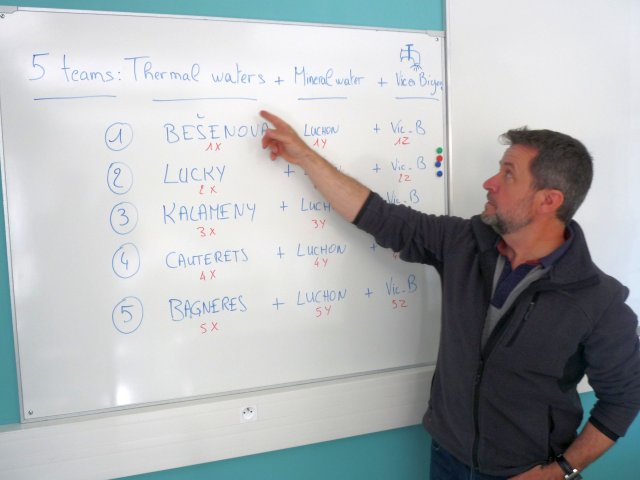 5 teams: Thermal waters + Mineral water + Vic en Bigorre
1 BEŠENOVA LUCHON + Vic-B
1X 1Y 1Z
2 LUCKY + + Vic-B
2X 2Z
3 KALAMENY + LUCH B
3X 3Y
4 CAUTERETS + LUCHON +
4X 4Y
5 BAGNERES + LUCHON + Vic-B
5X 5Y 5Z